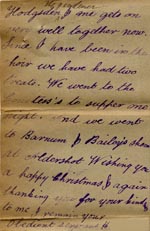 Hodgsden & me gets on
very well together now.
Since I have been in the
choir we have had two
treats. We went to the
to supper one
night. And we went
to Barnum & Bailey's show
at Aldershot Wishing you
a happy Christmas & again
thanking you for your kind
to me I remain your
Obedient